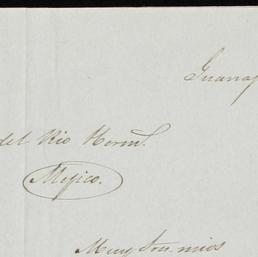 Guanaj
del Rio Herm.
Mejico.
Muy Sres. mios